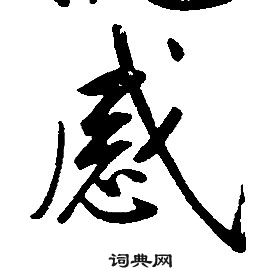 感
词典网